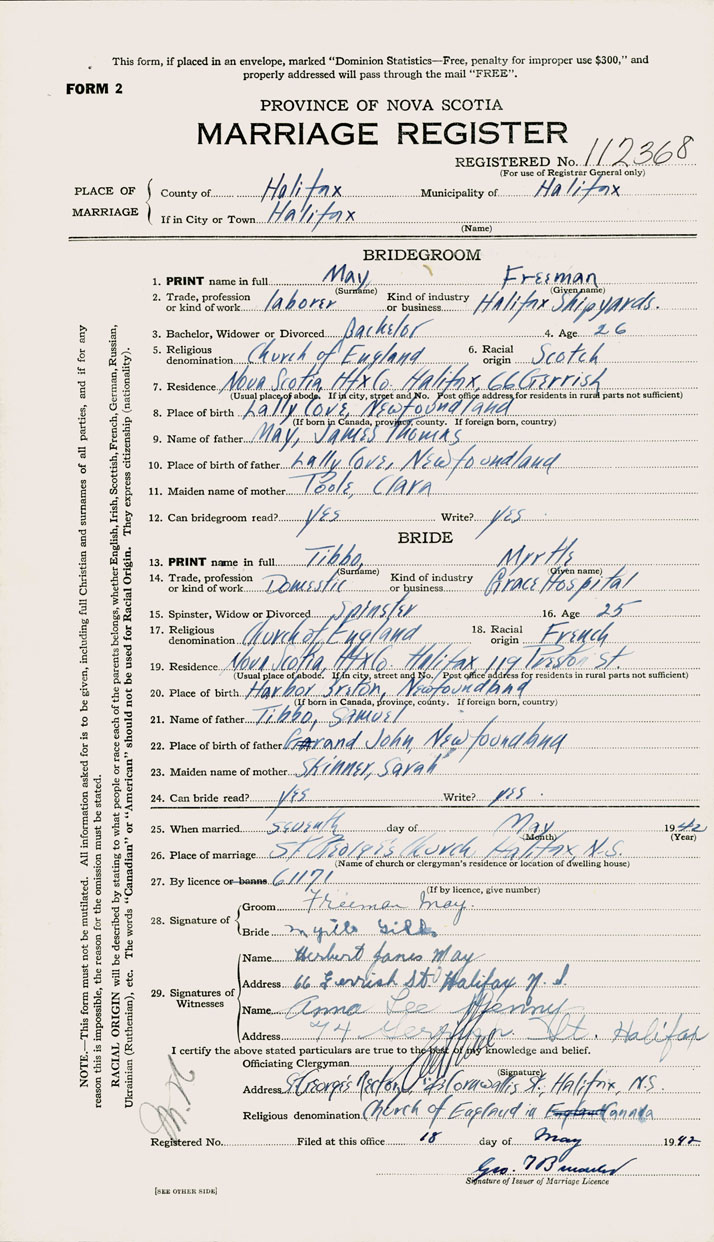 This form, if placed in an envelope, marked "Dominion Statistics—Free, penalty for improper use $300," and
properly addressed will pass through the mail "FREE".
FORM 2
PROVINCE OF NOVA SCOTIA
MARRIAGE REGISTER
REGISTERED No. 112368
(For use of Registrar General only)
PLACE OF MARRIAGE
County of Halifax Municipality of Halifax
If in City or Town Halifax
(Name)
BRIDEGROOM
1. PRINT name in full May, Freeman
(Surname) (Given name)
2. Trade, profession or kind of work laborer Kind of industry or business Halifax Shipyards.
3. Bachelor, Widower or Divorced Bachelor 4. Age 26
5. Religious denomination Church of England 6. Racial origin Scotch
7. Residence Nova Scotia, Hfx Co. Halifax, 66 Gerrish
(Usual place of abode. If in city, street and No. Post office address for residents in rural parts not sufficient)
8. Place of birth Lally Cove, Newfoundland
(If born in Canada, province, county. If foreign born, country)
9. Name of father May, James Thomas
10. Place of birth of father Lally Cove, Newfoundland
11. Maiden name of mother Poole, Clara
12. Can bridegroom read? yes Write? yes
BRIDE
13. PRINT name in full Tibbo, Myrtle
(Surname) (Given name)
14. Trade, profession or kind of work Domestic Kind of industry or business Grace Hospital
15. Spinster, Widow or Divorced Spinster 16. Age 25
17. Religious denomination Church of England 18. Racial origin French
19. Residence Nova Scotia, Hfx Co. Halifax, 119 Preston St.
(Usual place of abode. If in city, street and No. Post office address for residents in rural parts not sufficient)
20. Place of birth Harbor Breton, Newfoundland
(If born in Canada, province, county. If foreign born, country)
21. Name of father Tibbo, Samuel
22. Place of birth of father Grand John, Newfoundland
23. Maiden name of mother Skinner, Sarah
24. Can bride read? yes Write? yes
25. When married seventh day of May 1942
(Month) (Year)
26. Place of marriage St George's Church Halifax, N.S.
(Name of church or clergyman's residence or location of dwelling house)
27. By licence or banns 61171
(If by licence, give number)
28. Signature of
Groom Freeman May.
Bride Myrtle
29. Signatures of Witnesses
Name Herbert James May
Address 66 Gerrish St. Halifax N.S.
Name Anna Lee
Address 74 St. Halifax
I certify the above stated particulars are true to the best of my knowledge and belief.
Officiating Clergyman
(Signature)
Address St George's Rectory, Cornwallis St, Halifax, N.S.
Religious denomination Church of England in England Canada
Registered No. Filed at this office 18 day of May 1942
Geo.
Signature of Issuer of Marriage Licence
[SEE OTHER SIDE]
NOTE.—This form must not be mutilated. All information asked for is to be given, including full Christian and surnames of all parties, and if for any
reason this is impossible, the reason for the omission must be stated.
RACIAL ORIGIN will be described by stating to what people or race each of the parents belongs, whether English, Irish, Scottish, French, German, Russian,
Ukrainian (Ruthenian), etc. The words "Canadian" or "American" should not be used for Racial Origin. They express citizenship (nationality).